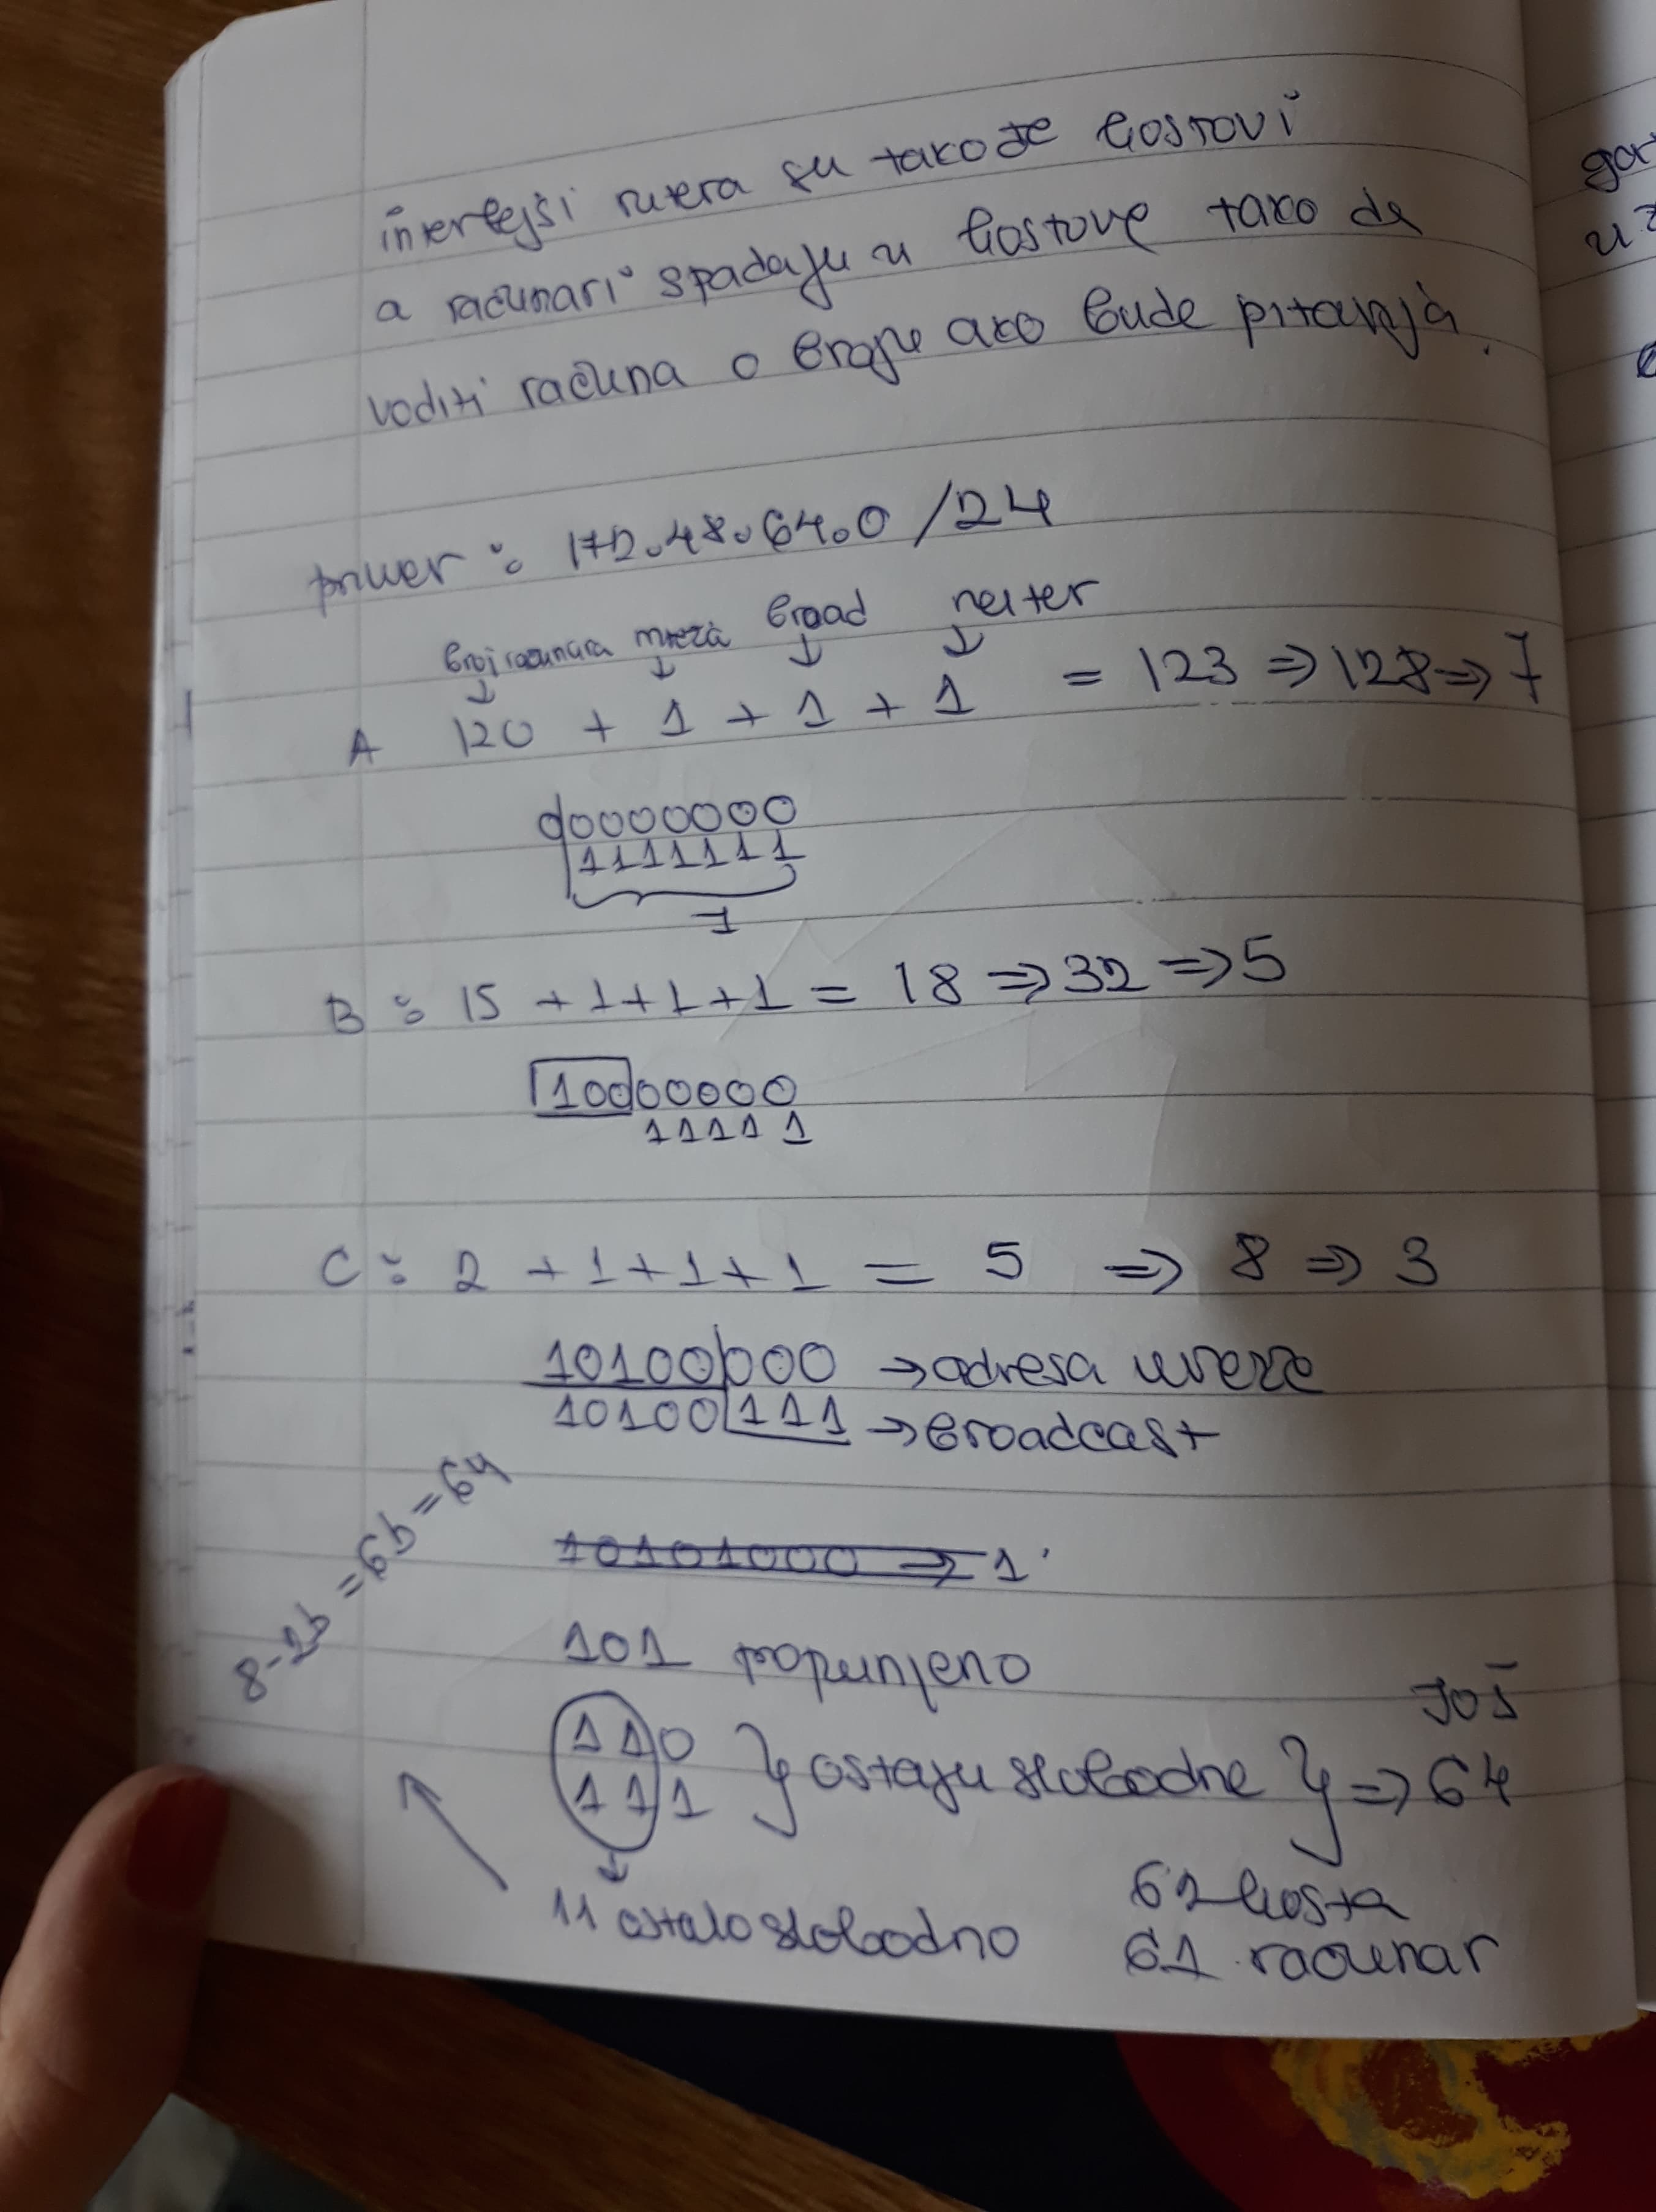 interfejsi rutera su takođe hostovi
a računari spadaju u hostove tako da
voditi računa o broju ako bude pitanja.
primer: 172.48.64.0 /24
broj računara mreža broad ruter
↓ ↓ ↓ ↓
A 120 + 1 + 1 + 1 = 123 ⇒ 128 ⇒ 7
00000000
1111111
7
B: 15 + 1 + 1 + 1 = 18 ⇒ 32 ⇒ 5
10000000
11111
C: 2 + 1 + 1 + 1 = 5 ⇒ 8 ⇒ 3
10100|000 → adresa mreže
10100|111 → broadcast
8-2b = 6b = 64
10101000 ⇒ 1
101 popunjeno
110
111 } ostaju slobodne } ⇒ 64 još
↓
11 ostalo slobodno
62 hosta
61 računar